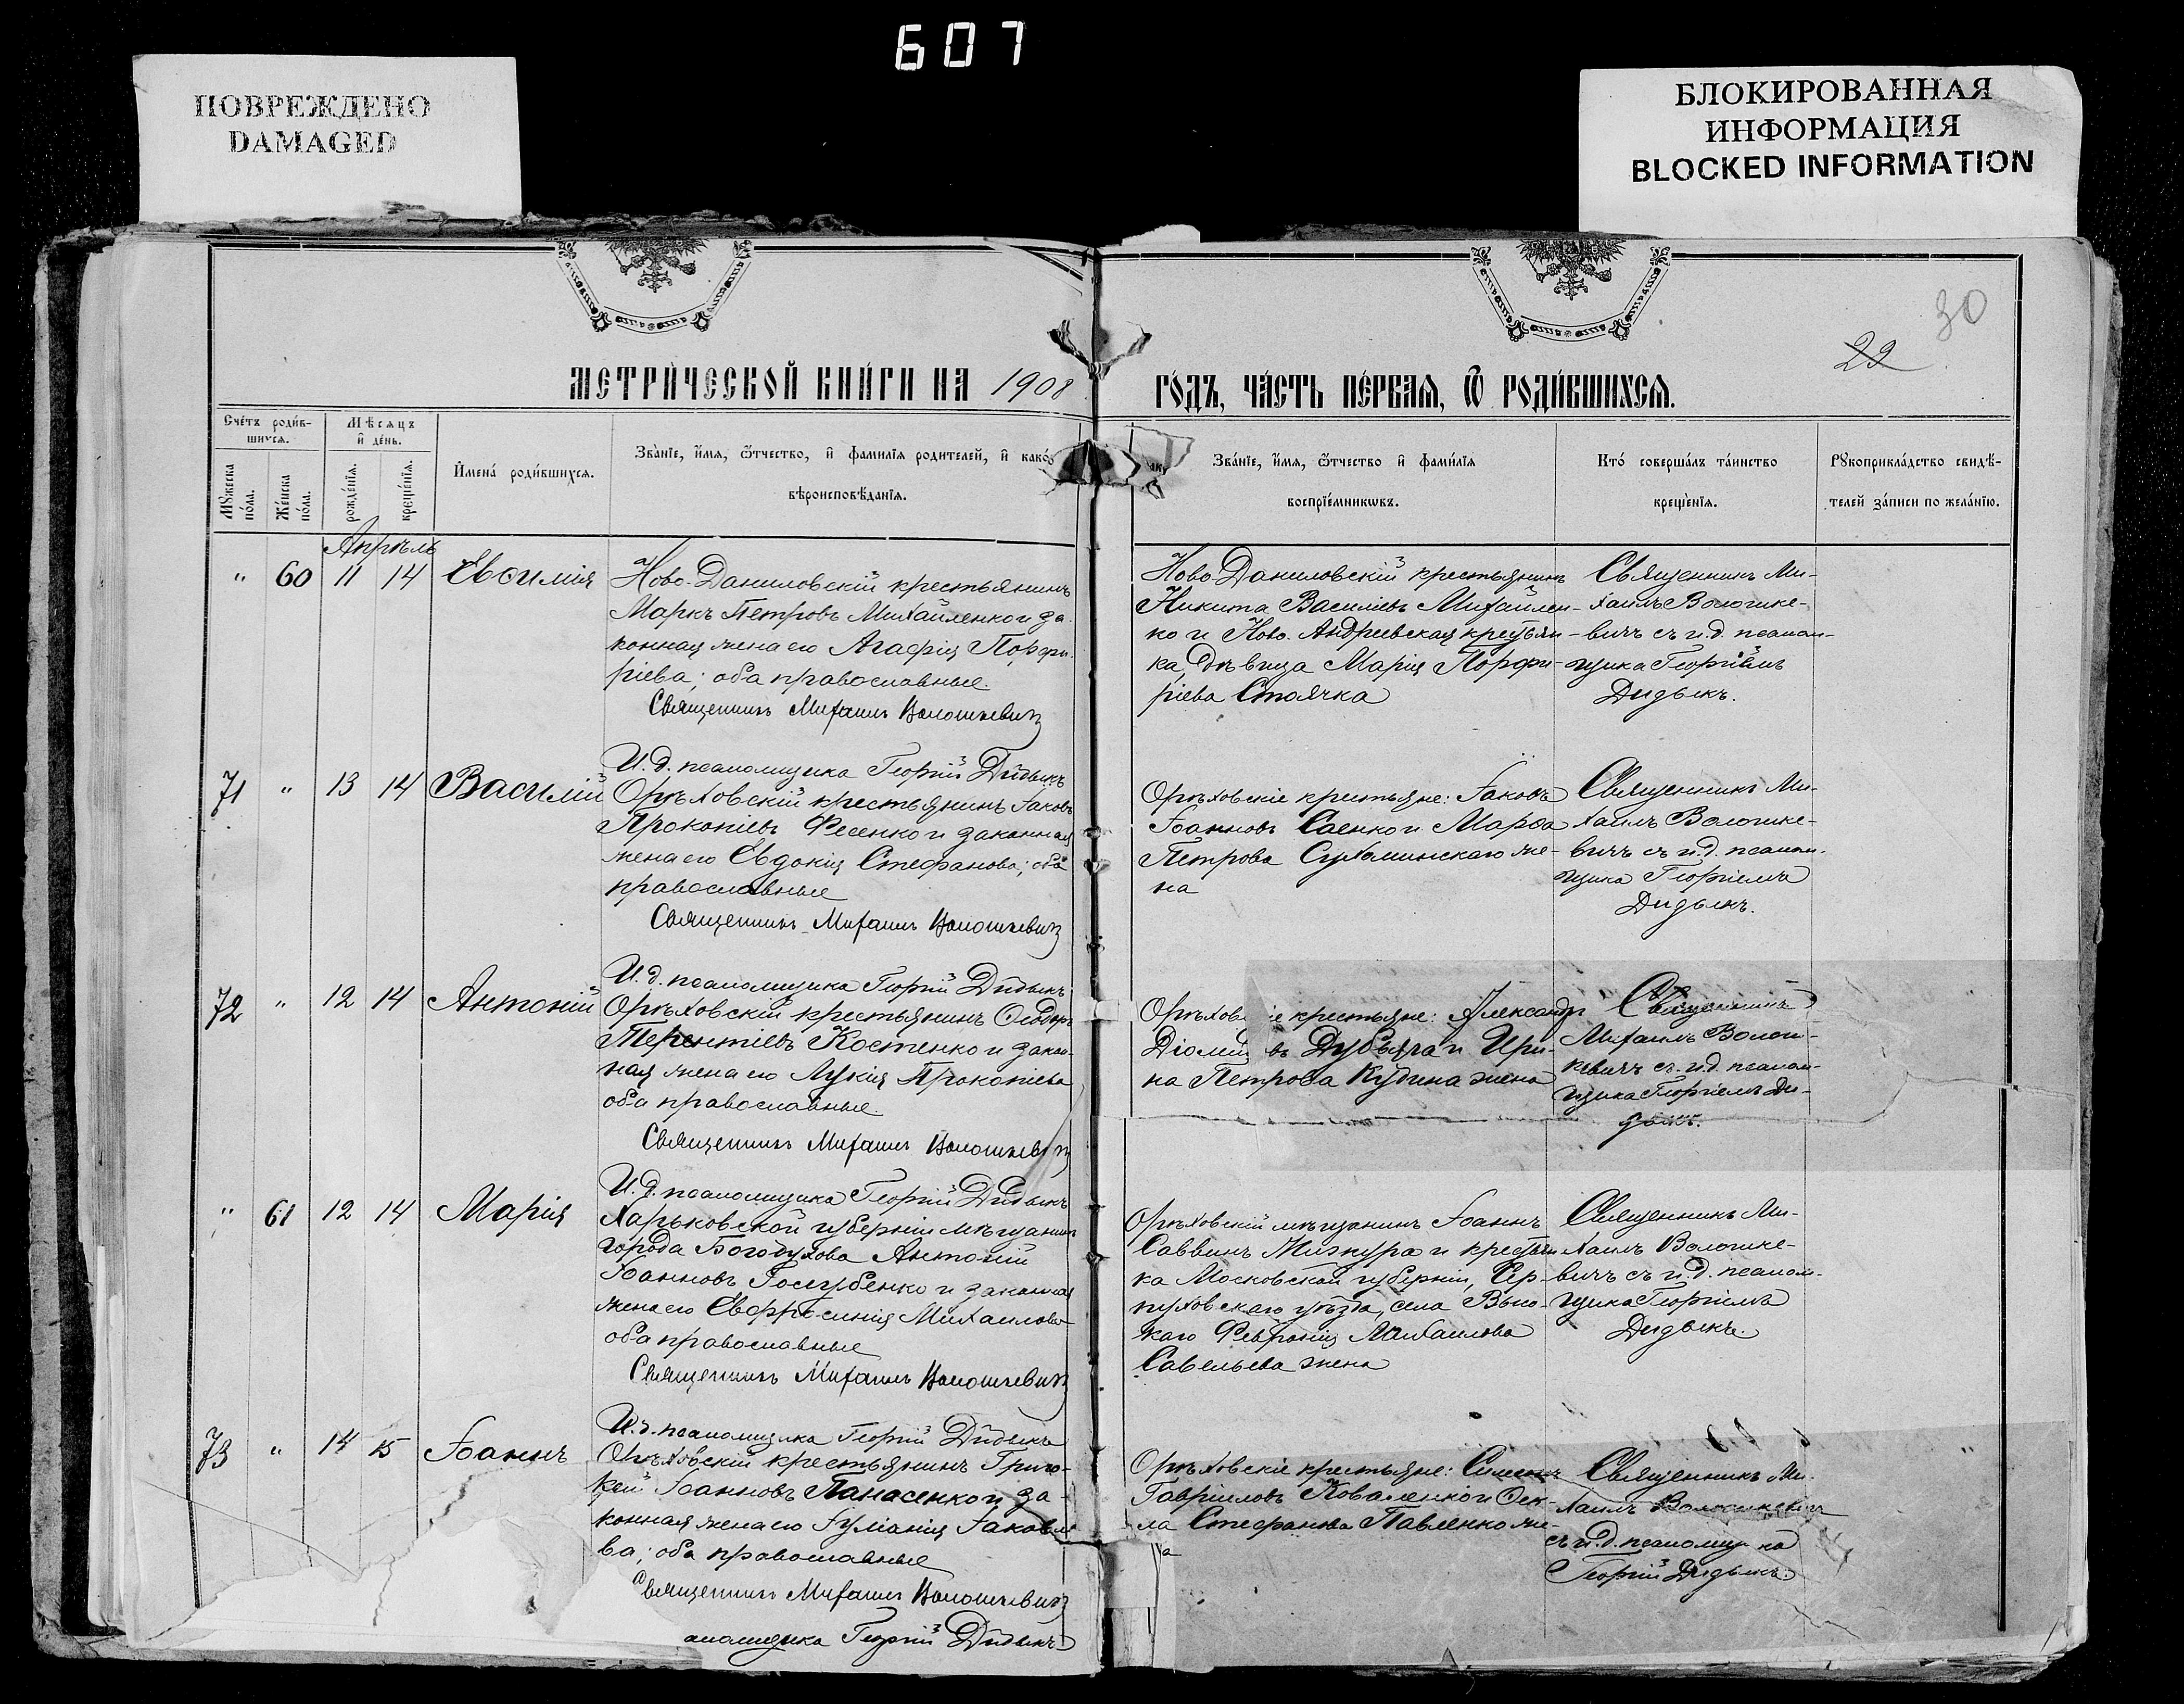 607
ПОВРЕЖДЕНО
DAMAGED
БЛОКИРОВАННАЯ
ИНФОРМАЦИЯ
BLOCKED INFORMATION
30
22
МЕТРИ́ЧЕСКОЙ КНИ́ГИ НА 1908
ГО́ДЪ, ЧА́СТЬ ПЕ́РВАЯ, Ѿ РОДИ́ВШИХСЯ.
Сче́тъ роди́в-
шихся.
Мѣсяцъ
и҆ де́нь.
Мꙋжеска
по́ла.
Же́нска
по́ла.
рожде́нїя.
креще́нїя.
И҆мена́ роди́вшихся.
Зва́нїе, и҆́мя, ѻ҆́тчество, и҆ фамилїя родителей, и҆ како́
вѣроисповѣ́данїя.
Зва́нїе, и҆́мя, ѻ҆́тчество и҆ фами́лїя
воспрїе́мникѡвъ.
Кто́ соверша́лъ та́инство
креще́нїя.
Рꙋкоприкла́дство свидѣ́-
телей за́писи по жела́нїю.
Апрѣль
" 60 11 14 Евѳимія
Ново-Даниловскій крестьянинъ
Маркъ Петровъ Михайленко и за-
конная жена его Агафія Порфи-
ріева; оба православные.
Священникъ Михаилъ Волошкевичъ
И. д. псаломщика Георгій Дидыкъ
Ново-Даниловскій крестьянинъ
Никита Василіевъ Михайлен-
ко и Ново-Андреевская крестьян-
ка, дѣвица Марія Порфи-
ріева Стоячка
Священникъ Ми-
хаилъ Волошке-
вичъ съ и.д. псалом-
щика Георгіемъ
Дидыкъ.
71 " 13 14 Василій
Орѣховскій крестьянинъ Іаковъ
Прокопіевъ Фесенко и законная
жена его Евдокія Стефанова; оба
православные
Священникъ Михаилъ Волошкевичъ
И. д. псаломщика Георгій Дидыкъ
Орѣховскіе крестьяне: Іаковъ
Іоанновъ Саенко и Марѳа
Петрова Сухоминскаго же-
на
Священникъ Ми-
хаилъ Волошке-
вичъ съ и.д. псалом-
щика Георгіемъ
Дидыкъ.
72 " 12 14 Антоній
Орѣховскій крестьянинъ Ѳеодоръ
Терентіевъ Костенко и закон-
ная жена его Лукія Прокопіева
оба православные.
Священникъ Михаилъ Волошкевичъ
И. д. псаломщика Георгій Дидыкъ
Орѣхов іе крестьяне: Александръ
Діомид въ Дубяга и Ири-
на Петрова Кудина жена
Священникъ
Михаилъ Волош-
кевичъ съ и.д. псалом-
щика Георгіемъ Ди-
дыкъ.
" 61 12 14 Марія
Харьковской губерніи мѣщанинъ
города Богодухова Антоній
Іоанновъ Голубенко и законная
жена его Евфросинія Михаилова
оба православные
Священникъ Михаилъ Волошкевичъ
И. д. псаломщика Георгій Дидыкъ
Орѣховскій мѣщанинъ Іоаннъ
Саввинъ Мизкура и крестьян-
ка Московской губерніи, Сер-
пуховскаго уѣзда, села Высо-
каго Февронія Михаилова
Савельева жена
Священникъ Ми-
хаилъ Волошке-
вичъ съ и.д. псалом-
щика Георгіемъ
Дидыкъ.
73 " 14 15 Іоаннъ
Орѣховскій крестьянинъ Григо-
рій Іоанновъ Панасенко и за-
конная жена его Іуліанія Іаковле-
ва; оба православные
Священникъ Михаилъ Волошкевичъ
аломщика Георгій Дидыкъ
Орѣховскіе крестьяне: Симеонъ
Гавріиловъ Коваленко и Ѳек-
ла Стефанова Павленко же-
а
Священникъ Ми-
хаилъ Волошкевичъ
съ и.д. псаломщика
Георгій Дидыкъ.